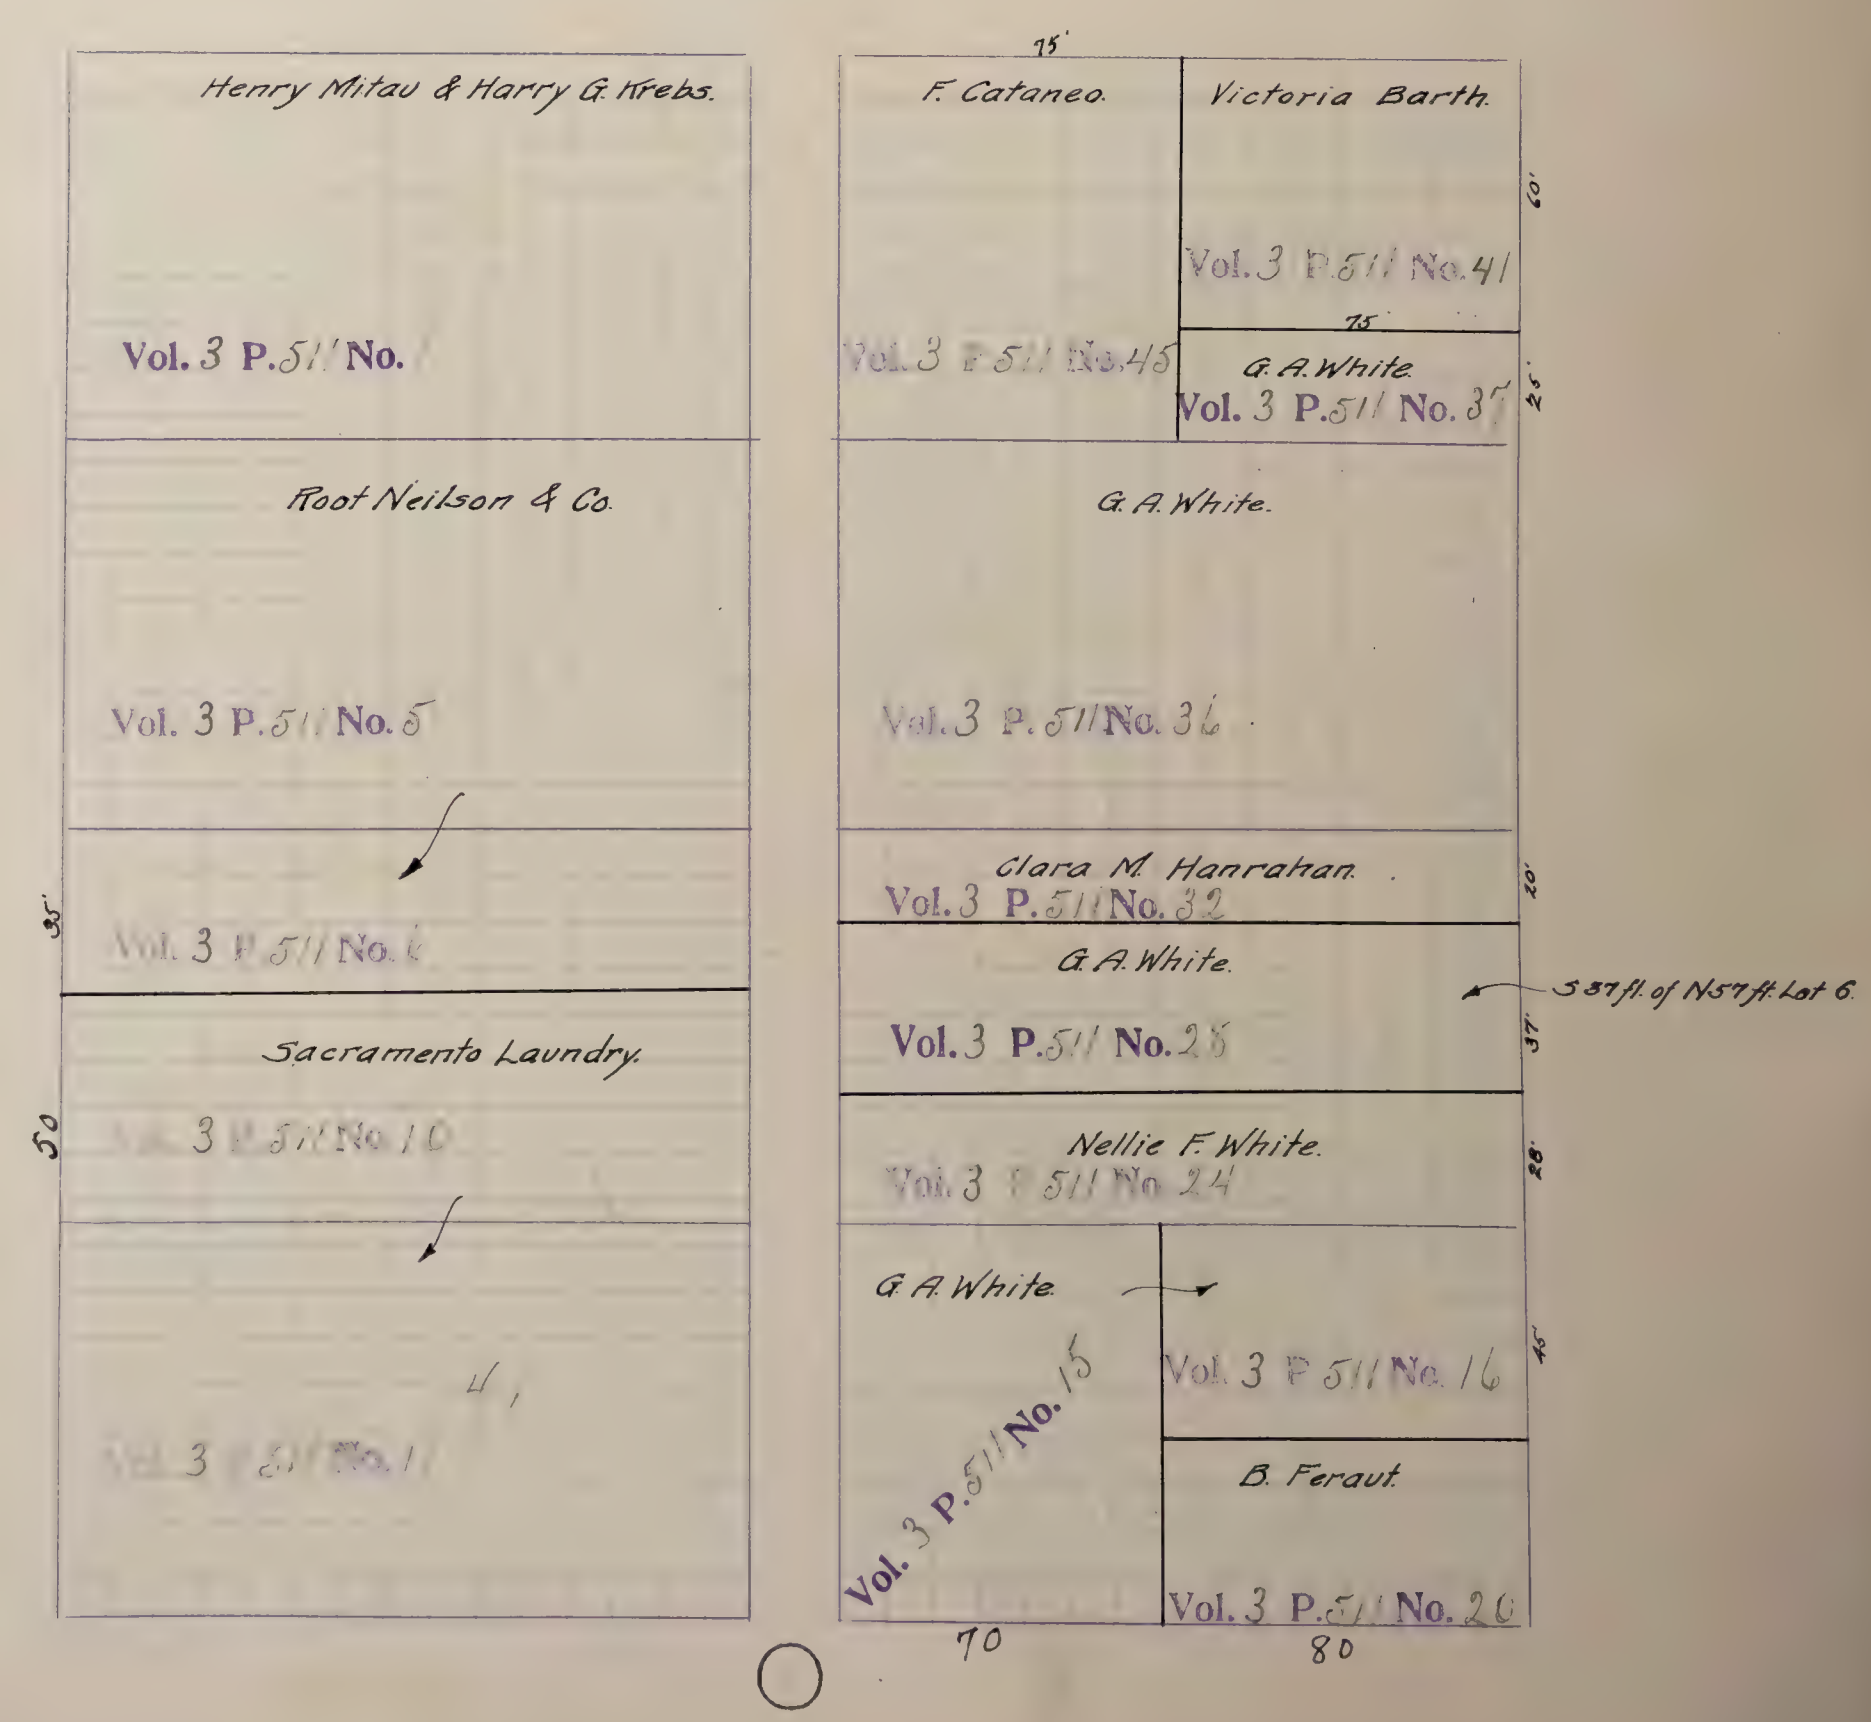 Henry Mitau & Harry G. Krebs.
Vol. 3 P. 511 No. 1
Root Neilson & Co.
Vol. 3 P. 511 No. 5
35'
Vol. 3 P. 511 No. 6
Sacramento Laundry.
50
Vol. 3 P. 511 No. 10
Vol. 3 P. 511 No. 11
75'
F. Cataneo.
Vol. 3 P. 511 No. 45
Victoria Barth.
60'
Vol. 3 P. 511 No. 41
75'
G. A. White.
25'
Vol. 3 P. 511 No.
G. A. White.
Vol. 3 P. 511 No. 36
Clara M. Hanrahan.
20'
Vol. 3 P. 511 No. 32
G. A. White.
S 37 ft. of N 57 ft. Lot 6.
37'
Vol. 3 P. 511 No. 28
Nellie F. White.
28'
Vol. 3 P. 511 No. 24
G. A. White.
Vol. 3 P. 511 No. 15
45'
Vol. 3 P. 511 No. 16
B. Feraut.
Vol. 3 P. 511 No. 20
70
80